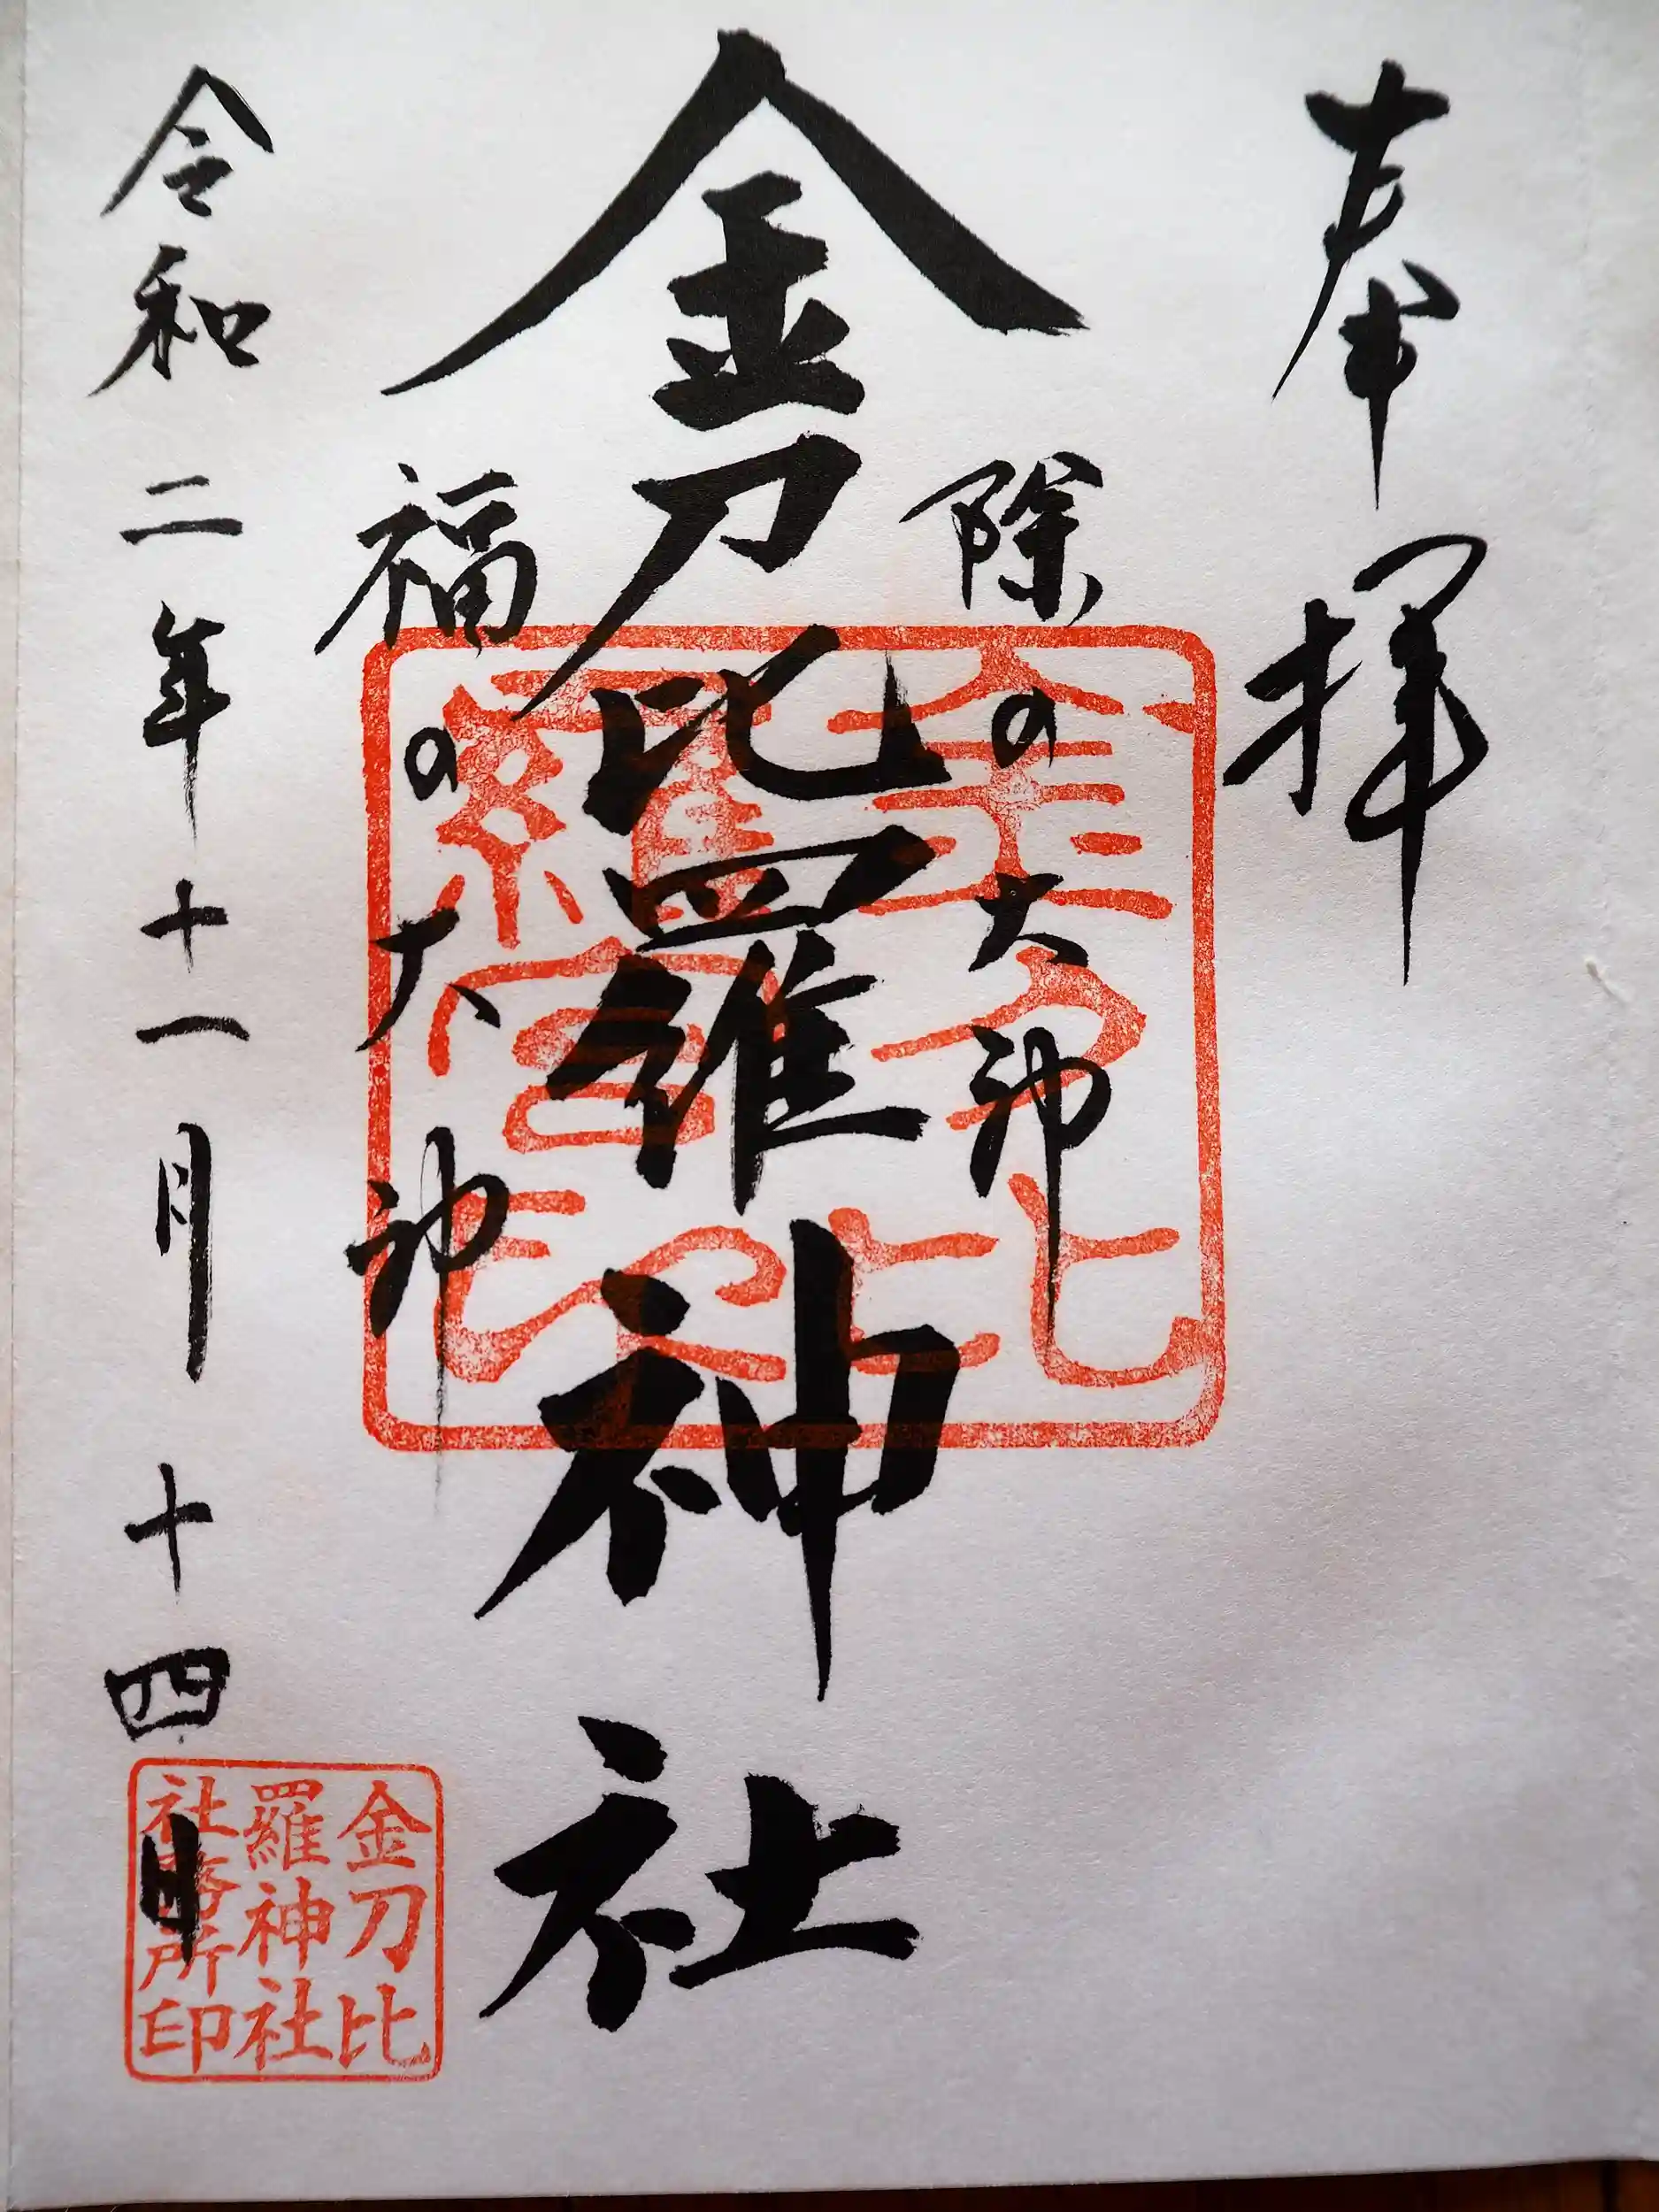 奉拝
除の大神
金刀比羅神社
福の大神
令和二年十一月十四日
金刀比
羅宮印
金刀比
羅神社
社務所印